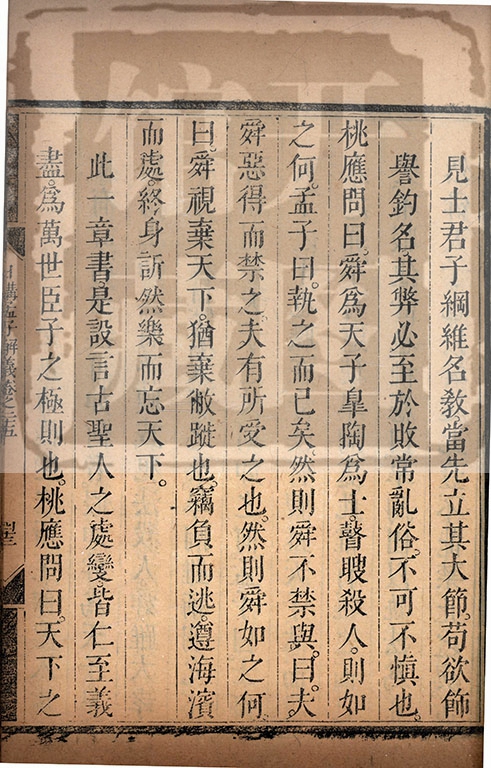 見士君子綱維名敎當先立其大節。苟欲飾
譽釣名其弊必至於敗常亂俗。不可不慎也。
桃應問曰。舜爲天子臯陶爲士瞽瞍殺人。則如
之何。孟子曰。執之而已矣。然則舜不禁與。曰。夫
舜惡得而禁之。夫有所受之也。然則舜如之何。
曰。舜視棄天下。猶棄敝蹝也。竊負而逃。遵海濱
而處。終身訢然樂而忘天下。
此一章書。是設言古聖人之處變。皆仁至義
盡。爲萬世臣子之極則也。桃應問曰。天下之
日講孟子解義卷之五